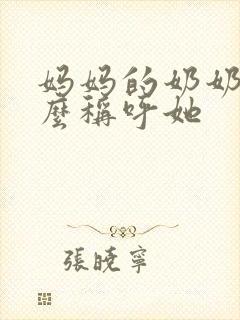 妈妈的奶奶
麽稱呼她
張曉寧